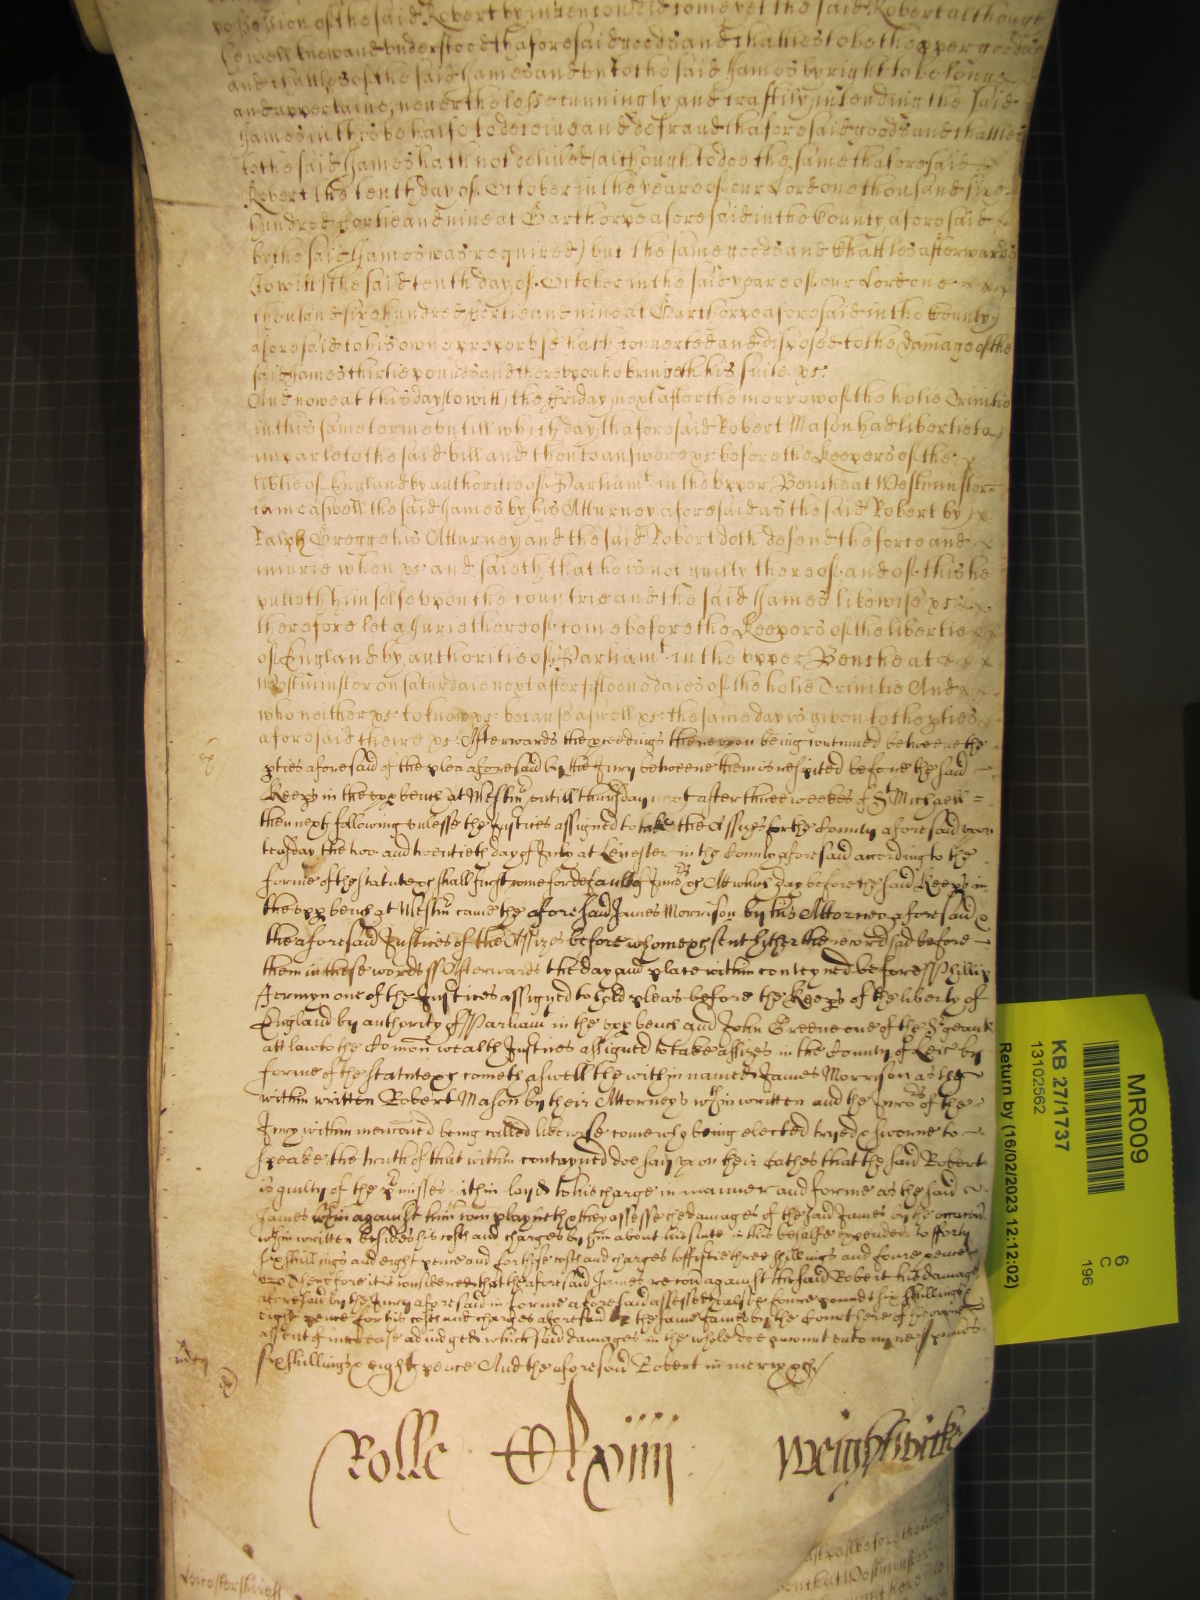 possession of the said Robert by invencon did come yet the said Robert although
he well knew and understood thaforesaid goods and chattles to be the proper goodes
and chattles of the said James and unto the said James by right to belong
and appertaine, neverthelesse cunningly and craftily intending the said
James in this behalfe to deceive and defraud thaforesaid goods and chattles
to the said James hath not delived (although to doe the same thaforesaid
Robert the tenth day of October in the yeare of our Lord one thousand sixe
hundred fortie and nine at Garthorpe aforesaid in the County aforesaid
by the said James was required) but the same goods and Chattles afterwards
To witt the said tenth day of October in the said yeare of our Lord one
thousand sixe hundred fortie and nine at Garthorpe aforesaid in the County
aforesaid to his owne proper use hath converted and disposed to the damage of the
said James thirtie pounds and thereupon he bringeth his suite &c:
And nowe at this day (to witt) the Friday next after the morrow of the holie Trinitie
in this same terme untill which day thaforesaid Robert Mason had libertie to
imparle to the said bill and then to answere &c before the Keepers of the
libtie of England by authoritie of Parliamt in the upper Benche at Westminster
came aswell the said James by his Atturney aforesaid as the said Robert by
Ralph Gregge his Atturney and the said Robert doth defend the force and
iniurie when &c: and saieth that he is not guilty thereof: and of: this he
putteth himselfe uppon the countrie and the said James likewise &c:
therefore let a Jurie thereof: come before the Keepers of the libertie
of England by authoritie of Parliamt in the upper Benche at
Westminster on Saturdaie next after fifteene daies of the holie Trinitie And
who neither &c: to know &c: because aswell &c: the same day is given to the pties
aforesaid theire &c: Afterwards the pceedings thereupon being continued betweene the
pties aforesaid of the plea aforesaid by the Jury betweene them is respited before the said
Keeps in the upp bench at Westmr untill thursday next after three weekes of St Michaell
then next following unlesse the Justices assigned to take the Assizes for the County aforesaid upon
teusday the two and twentieth day of July at Leicester in the County aforesaid according to the
forme of the statute &c shall first come for default of Jurors &c At which day before the said Keeps in
the upp bench at Westmr came the aforesaid James Morrison by his Attorney aforesaid &
the aforesaid Justices of the Assizes before whome &c sent hither the record had before
them in these words ss Afterwards the day and place within conteyned before Phillip
Jermyn one of the Justices assigned to hold pleas before the Keeps of the liberty of
England by authority of Parliam in the upp bench and John Greene one of the Sergeants
att law to the Comon wealth Justices assigned to take assizes in the County of Leic by
forme of the statute &c cometh aswell the within named James Morrison as the
within written Robert Mason by their Attorneys within written and the Jurors of the
Jury within menconed being called likewise come who being elected tryed & sworne to
speake the truth of that within conteyned doe say upon their oathes that the said Robert
is guilty of the pmisses within layd to his charge in manner and forme as the said
James within against him complayneth & they assesse the damages of the said James by the occacon
within written besides his costs and charges by him about his suite in this behalfe expended to forty
six shillings and eight pence and for those costs and charges to fiftie three shillings and foure pence
Therefore it is considered that the aforesaid James recov against the said Robert his damage
aforesaid by the Jury aforesaid in forme aforesaid assessed & alsoe foure pounds six shillings &
eight pence for his costs and charges aforesaid to the same James by the Court here of his owne
assent of increase adiudged which said damages in the whole doe amount unto nyne pounds
six shillings & eight pence And the aforesaid Robert in mercy &c
Rolle Clxiiii Weightwicke
Leicestershire ss
MR009
KB 27/1737
13102562
Return by (16/02/2023 12:12:02)
6
C
196